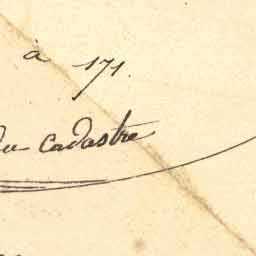 à 171.
du cadastre